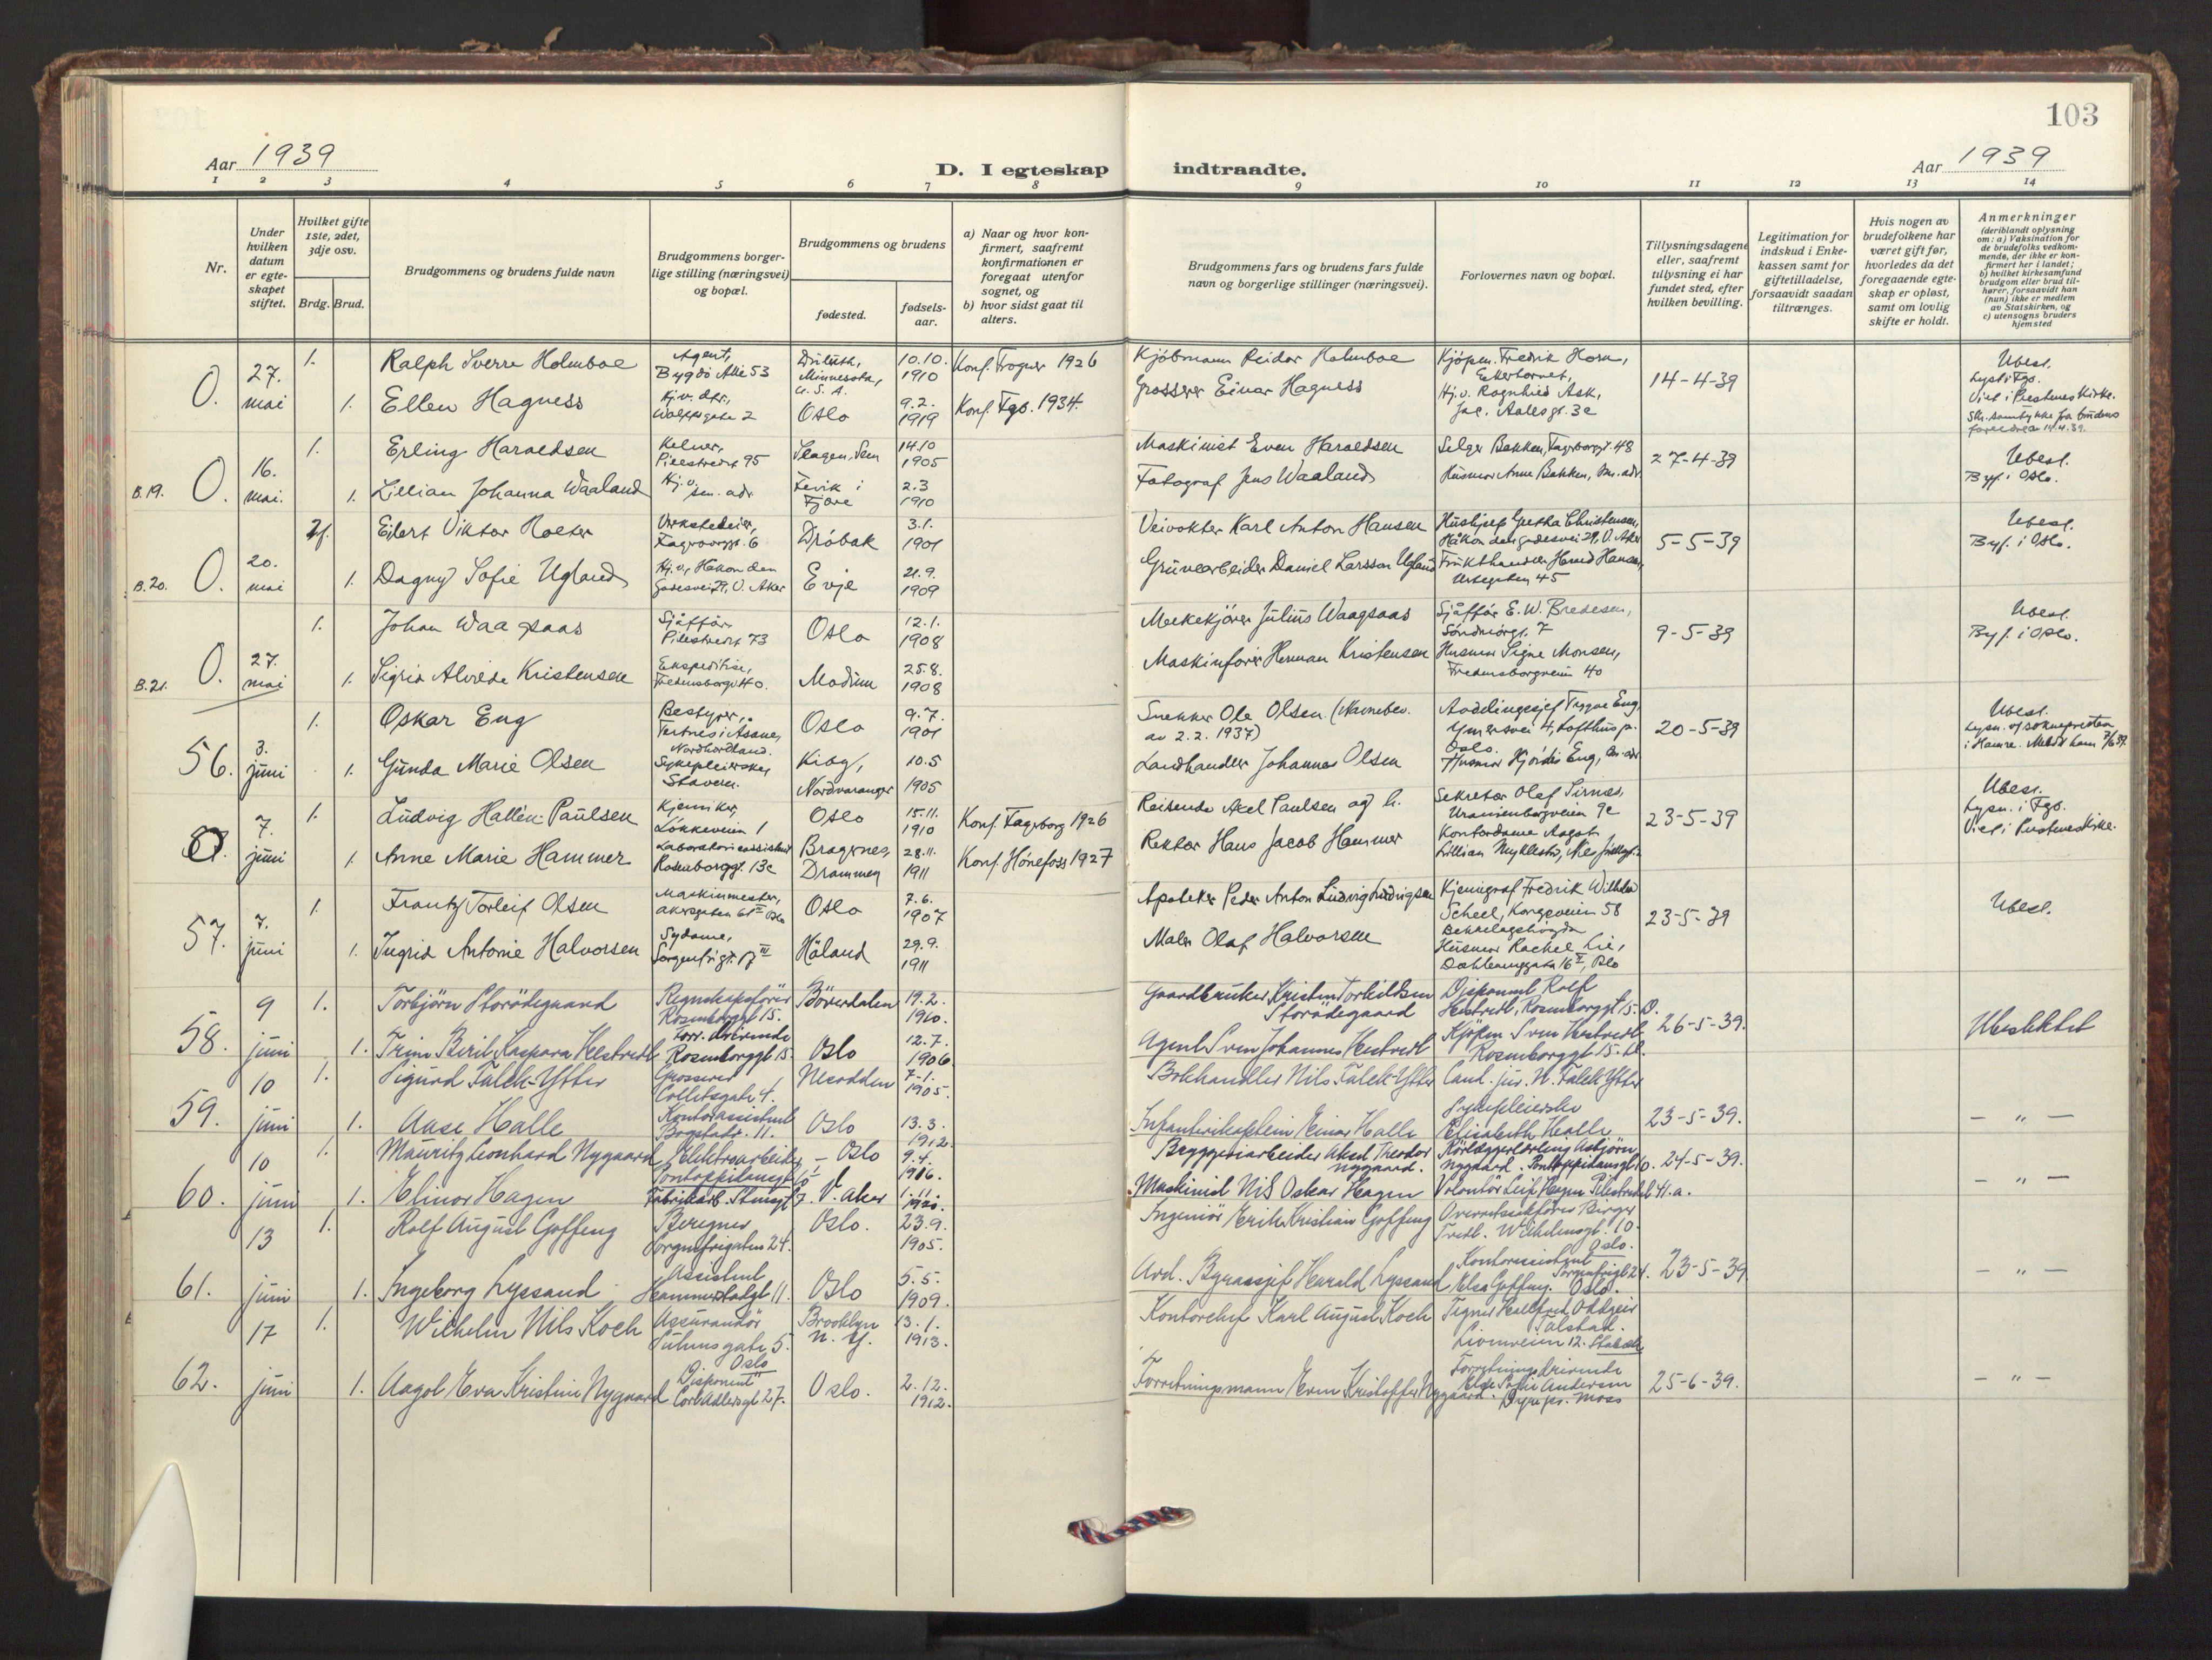 103
Aar 1939
D. I egteskap indtraadte.
Aar 1939
1 2 3 4 5 6 7 8 9 10 11 12 13 14
Nr.
Under hvilken datum er egteskapet stiftet.
Hvilket gifte 1ste, 2det, 3dje osv.
Brdg. Brud.
Brudgommens og brudens fulde navn
Brudgommens borgerlige stilling (næringsvei) og bopæl.
Brudgommens og brudens
fødested.
fødselsaar.
a) Naar og hvor konfirmert, saafremt konfirmationen er foregaat utenfor sognet, og
b) hvor sidst gaat til alters.
Brudgommens fars og brudens fars fulde navn og borgerlige stillinger (næringsvei).
Forlovernes navn og bopæl.
Tillysningsdagene eller, saafremt tillysning ei har fundet sted, efter hvilken bevilling.
Legitimation for indskud i Enkekassen samt for giftetilladelse, forsaavidt saadan tiltrænges.
Hvis nogen av brudefolkene har været gift før, hvorledes da det foregaaende egteskap er opløst, samt om lovlig skifte er holdt.
Anmerkninger (deriblandt oplysning om: a) Vaksination for de brudefolks vedkommende, der ikke er konfirmert her i landet; b) hvilket kirkesamfund brudgom eller brud tilhører, forsaavidt han (hun) ikke er medlem av Statskirken, og c) utensogns bruders hjemsted
O. 27. mai
1. Ralph Sverre Holmboe Agent, Bygdö Allé 53 Duluth, Minnesota, U.S.A. 10.10. 1910 Konf. Frogner 1926 Kjöbmann Reidar Holmboe Kjöpm. Fredrik Horn,
1. Ellen Hagness Hj.v. dtr., 2 Oslo 9.2. 1919 Konf. Fgb. 1934. Grosserer Einar Hagness Hj.v. Ragnhild Ask, Jac. Aallsgt. 3c
14-4-39
Ubesl. Lyst i Fgb. Viet i Prestenes Kirke.
B.19. O. 16. mai.
1. Erling Haraldsen Kelner, Pilestredet 95 Slagen, Sem 14.10 1905 Maskinist Even Haraldsen Selger Bakken, Fagerborggt. 48
1. Lillian Johanna Waaland Hj.v. sm. adr. Fevik i Fjære 2.3 1910 Fotograf Jens Waaland Husmor Anne Bakken, sm. adr.
27-4-39
Ubesl. Byf. i Oslo.
B.20. O. 20. mai
2f. Eilert Viktor Fagerborggt. 6 Dröbak 3.1. 1901 Veivokter Karl Anton Hansen Gretha Christensen, Håkon den godesvei 29, V. Aker
1. Dagny Sofie Ugland Hj.v., Håkon den godesvei 29, V. Aker Evje 21.9. 1909 Gruvearbeider Daniel Larsson Ugland Frukthandler Harald Hansen, 45
5-5-39
Ubesl. Byf. i Oslo.
B.21. O. 27. mai
1. Johan Waagsaas Sjåffør, Pilestredet 73 Oslo 12.1. 1908 Melkekjörer Julius Waagsaas Sjåffør E.W. Bredesen, Söndmörgt. 7
1. Sigrid Alvilde Kristensen Fredensborgv. 40. Modum 25.8. 1908 Maskinfører Herman Kristensen Husmor Signe Monsen, Fredensborgveien 40
9-5-39
Ubesl. Byf. i Oslo.
56. 3. juni
1. Oskar Eng Bestyrer, Tertnes i Åsane, Nordhordland. Oslo 9.7. 1901 Snekker Ole Olsen. (Navnebev. av 2.2.1937) Avdelingssjef Trygve Eng, Oslo.
1. Gunda Marie Olsen Sykepleierske, Stavern. Nordvaranger 10.5 1905 Landhandler Johannes Olsen Husmor Hjördis Eng, sm. adr
20-5-39
Ubesl.
O. 7. juni
1. Ludvig Hallén-Paulsen Kjemiker, Lökkeveien 1 Oslo 15.11. 1910 Konf. Fagerborg 1926 Reisende Axel Paulsen og h. Sekretær Olaf Uranienborgveien 9c
1. Anne Marie Hammer Laboratorieassistent Rosenborggt. 13c Bragernes, Drammen 28.11. 1911 Konf. Hönefoss 1927 Rektor Hans Jacob Hammer Kontordame Aagot Lillian
23-5-39
Ubesl. Lysn. i Fgb. Viet i Prestenes Kirke.
57. 7. juni
1. Frantz Torleif Olsen Maskinmester, Akersgaten Oslo Oslo 7.6. 1907 Apoteker Peder Anton Ludvig Ludvigsen Kjemigraf Fredrik Wilhelm Scheel, Kongsveien 58 Bekkelagshögda
1. Ingrid Antonie Halvorsen Sydame, Sorgenfrigt. 17 III Höland 29.9. 1911 Maler Olaf Halvorsen Husmor Rachel Lie, Oslo
23-5-39
Ubesl.
58. 9 juni
1. Torbjörn Storödegaard Regnskapsförer Rosenborggt 15. Böverdalen 19.2. 1910. Gaardbruker Kristen Torkildsen Storödegaard Disponent Rolf Rosenborggt 15. O.
1. Berit Kaspara Rosenborggt 15 Oslo 12.7. 1906 Agent Sven Johannes Kjöpm. Sven Rosenborggt 15.
26-5-39.
Ubeslektet
59. 10 juni
1. Sigurd Falck-Ytter Grosserer Colletsgate 4. Notodden 7-1. 1905. Bokhandler Nils Falck-Ytter Cand. jur. N. Falck Ytter
1. Aase Halle Kontorassistent Bogstadv. 11. Oslo 13.3. 1912. Infanterikaptein Einar Halle Sykepleierske Elisabeth Halle
23-5-39.
— „ —
60. 10 juni
1. Mauritz Leonhard Nygaard Elektroarbeider Pontoppidansgt Oslo 9.4. 1916. Bryggeriarbeider Aksel Theodor Nygaard. Rörleggerlærling Asbjörn Nygaard. Pontoppidansgt 10.
1. Elinor Hagen Fabrikarb. Stensgt 7. V. Aker 1.11. Maskinist Nils Oskar Hagen Volontör Leif Hagen Pilestredet 41.a.
24-5-39.
— „ —
61. 13 juni
1. Rolf August Goffeng Beregner Sorgenfrigaten 24. Oslo. 23.9. 1905. Ingeniör Erik Kristian Goffeng Overrettssakförer Birger Wilhelmsgt. 10. Oslo.
1. Ingeborg Lyssand Assistent Hammerstadgt 11. Oslo 5.5. 1909. Avd. Byraasjef Harald Lyssand Kontorassistent Elsa Goffeng. Sorgenfrigt 24. Oslo.
23-5-39
— „ —
62. 17 juni
1. Wilhelm Nils Koch Assurandör Suhmsgate 5. Oslo Brooklyn N.Y. 13.1. 1913. Kontorchef Karl August Koch Tegner Hallfred Oddgeir Tolstad. 12. Stabekk
1. Aagot Eva Kristine Nygaard Disponent Cort Adlersgt 27. Oslo. 2.12. 1912. Forretningsmann Even Kristoffer Nygaard. Forretningsdrivende Else Sofie Andersen Moss
25-6-39.
— „ —